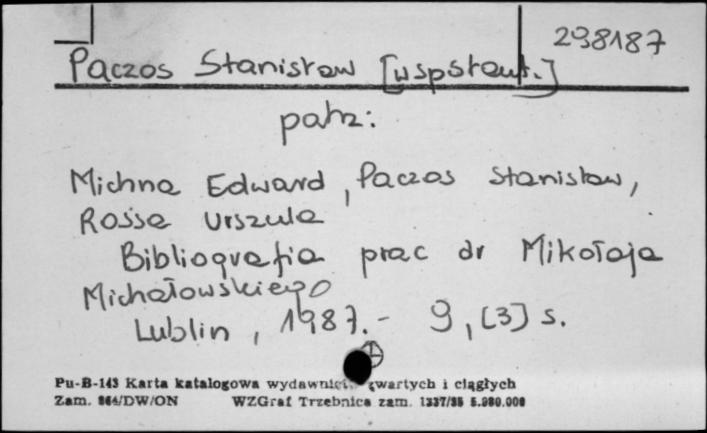 298187
Paczos Stanisław [współaut.]
patrz:
Michna Edward, Paczos Stanisław,
Rossa Urszula
Bibliografia prac dr Mikołaja
Michałowskiego
Lublin, 1987.- 9, [3] s.
Pu-B-143 Karta katalogowa wydawnict zwartych i ciągłych
Zam. 864/DW/ON WZGraf Trzebnica zam. 1337/85 5.980.000